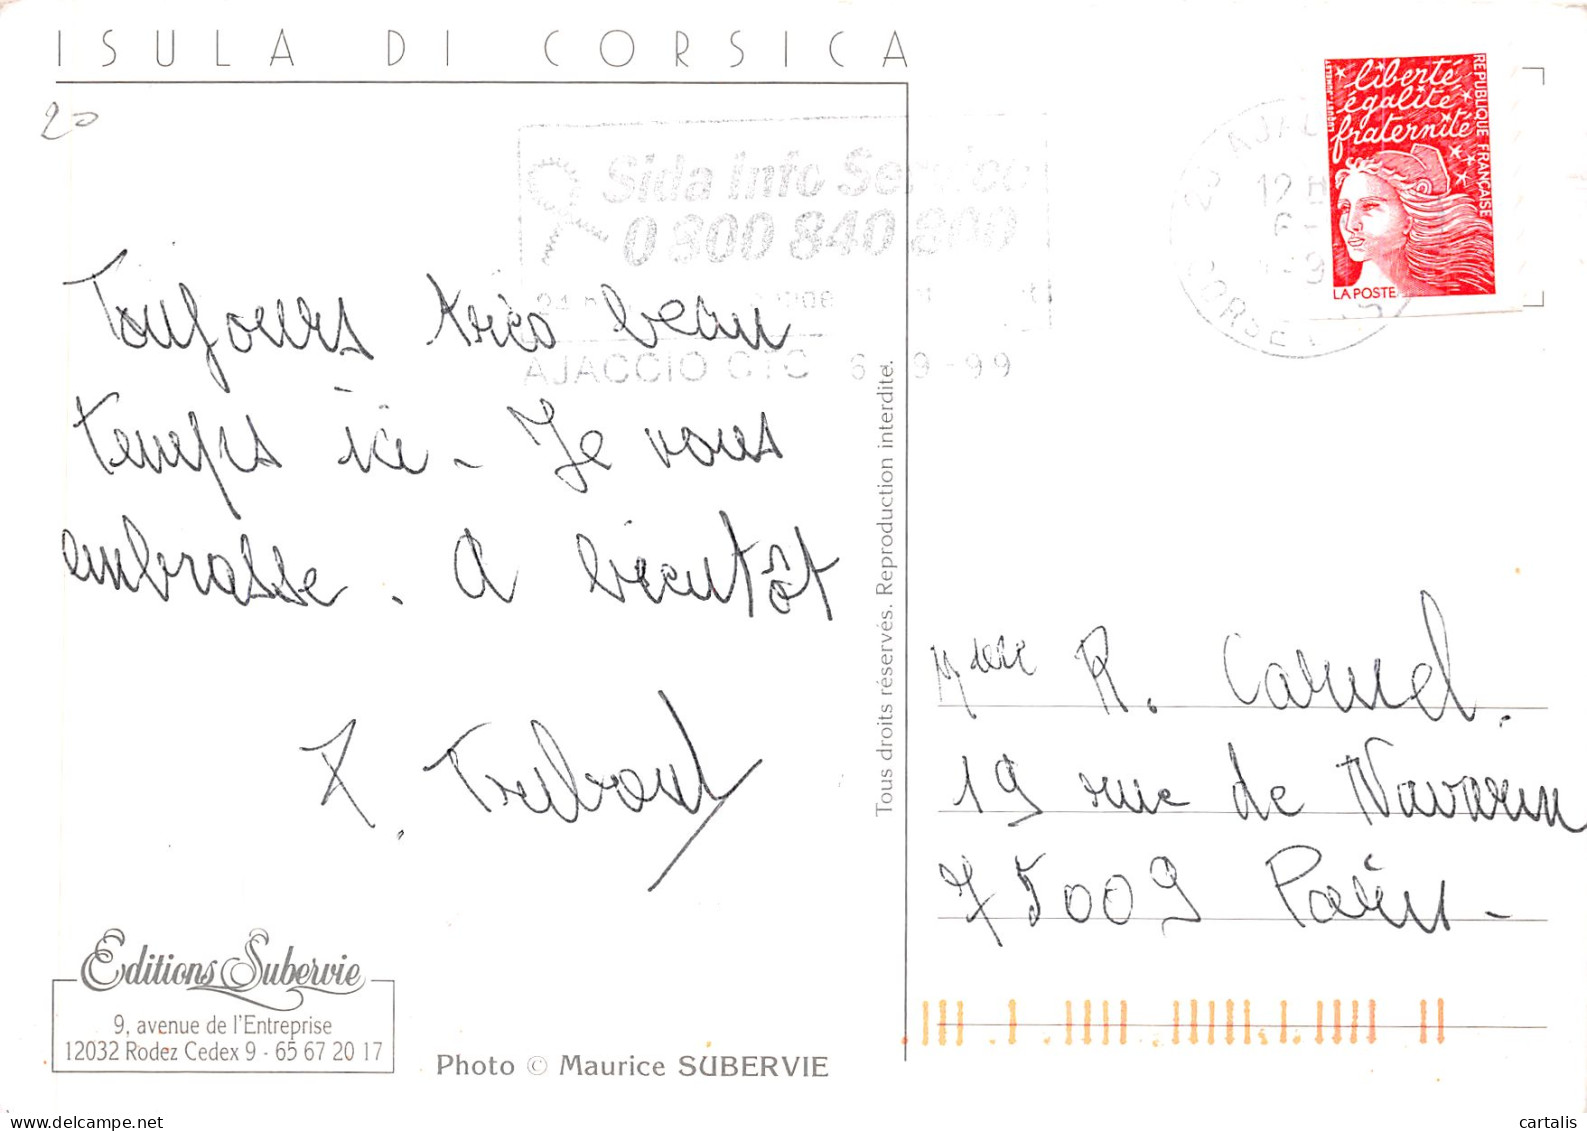 ISULA DI CORSICA
20
Sida Info Service
0 800 840 800
AJACCIO CTC 6-9-99
12 H
CORSE
liberté
égalité
fraternité
REPUBLIQUE FRANÇAISE
LA POSTE
Toujours très beau
temps ici - Je vous
embrasse. A bientôt
Tous droits réservés. Reproduction interdite.
Mme R. Carmel.
19 rue de Navarin
75009 Paris -
Editions Subervie
9, avenue de l'Entreprise
12032 Rodez Cedex 9 - 65 67 20 17
Photo © Maurice SUBERVIE
cartalis